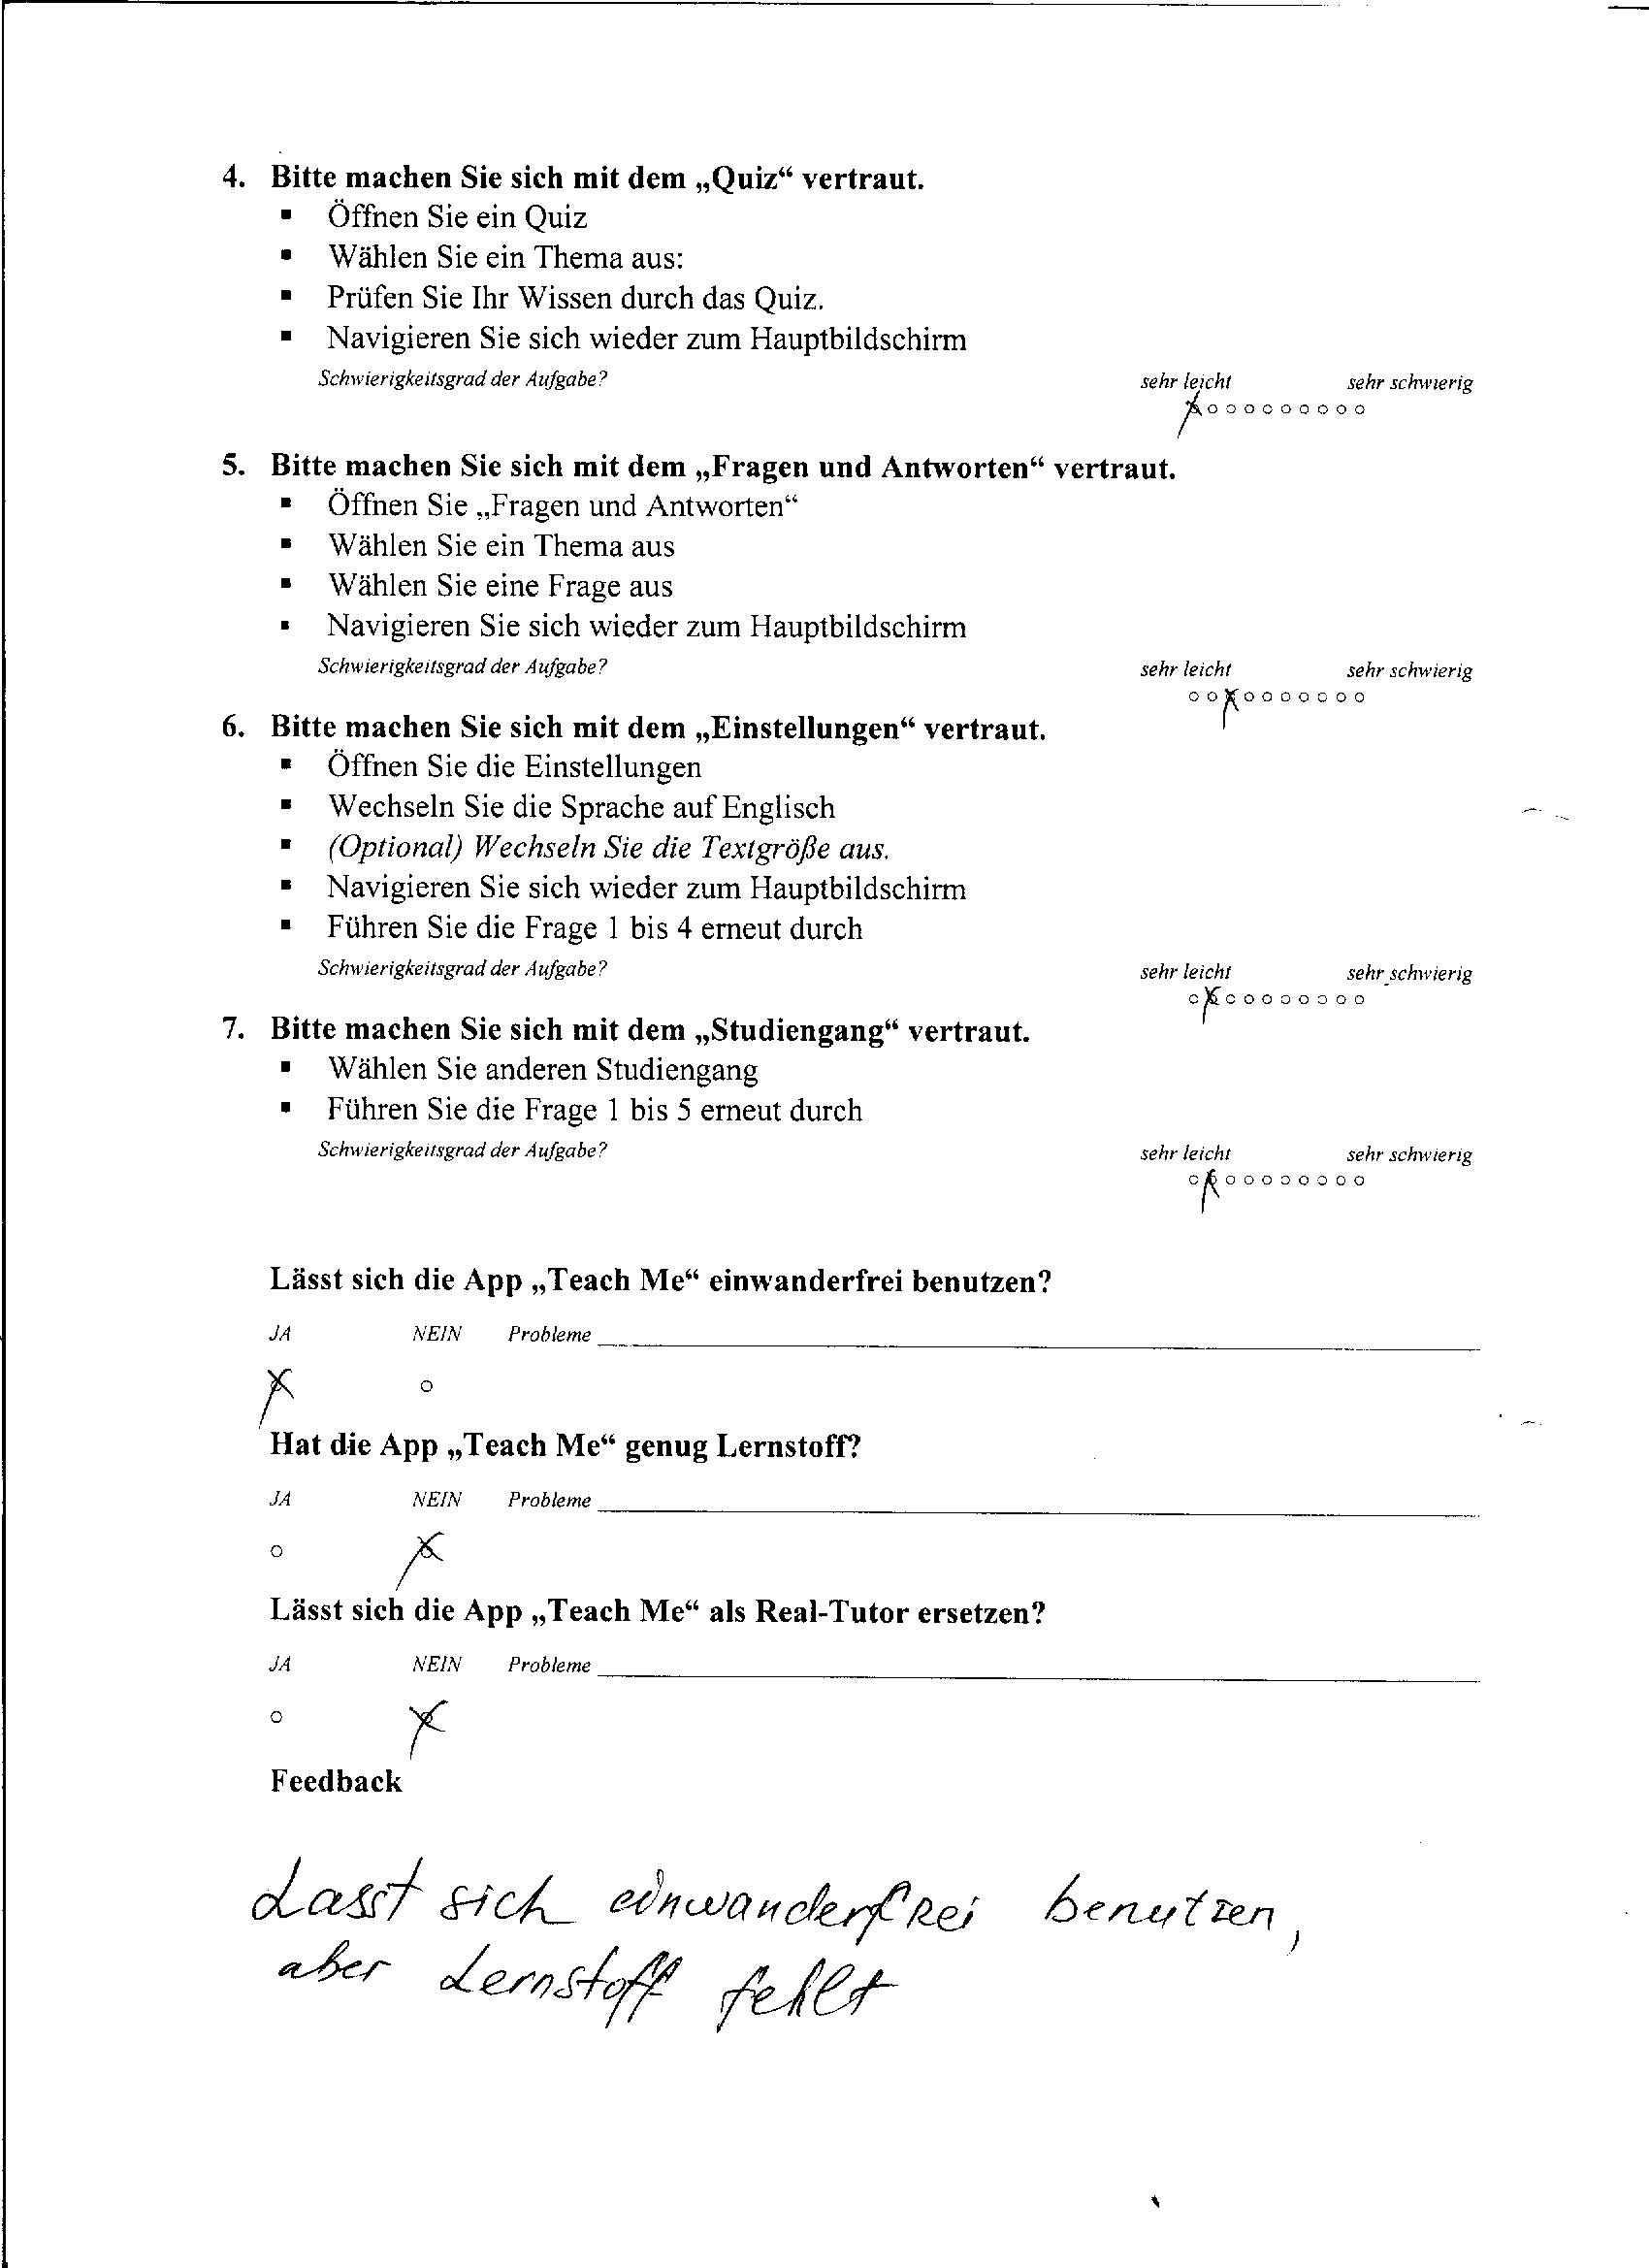 4. Bitte machen Sie sich mit dem „Quiz“ vertraut.
▪ Öffnen Sie ein Quiz
▪ Wählen Sie ein Thema aus:
▪ Prüfen Sie Ihr Wissen durch das Quiz.
▪ Navigieren Sie sich wieder zum Hauptbildschirm
Schwierigkeitsgrad der Aufgabe? sehr leicht sehr schwierig
5. Bitte machen Sie sich mit dem „Fragen und Antworten“ vertraut.
▪ Öffnen Sie „Fragen und Antworten“
▪ Wählen Sie ein Thema aus
▪ Wählen Sie eine Frage aus
▪ Navigieren Sie sich wieder zum Hauptbildschirm
Schwierigkeitsgrad der Aufgabe? sehr leicht sehr schwierig
6. Bitte machen Sie sich mit dem „Einstellungen“ vertraut.
▪ Öffnen Sie die Einstellungen
▪ Wechseln Sie die Sprache auf Englisch
▪ (Optional) Wechseln Sie die Textgröße aus.
▪ Navigieren Sie sich wieder zum Hauptbildschirm
▪ Führen Sie die Frage 1 bis 4 erneut durch
Schwierigkeitsgrad der Aufgabe? sehr leicht sehr schwierig
7. Bitte machen Sie sich mit dem „Studiengang“ vertraut.
▪ Wählen Sie anderen Studiengang
▪ Führen Sie die Frage 1 bis 5 erneut durch
Schwierigkeitsgrad der Aufgabe? sehr leicht sehr schwierig
Lässt sich die App „Teach Me“ einwanderfrei benutzen?
JA NEIN Probleme
Hat die App „Teach Me“ genug Lernstoff?
JA NEIN Probleme
Lässt sich die App „Teach Me“ als Real-Tutor ersetzen?
JA NEIN Probleme
Feedback
Lasst sich einwanderfrei benutzen,
aber Lernstoff fehlt